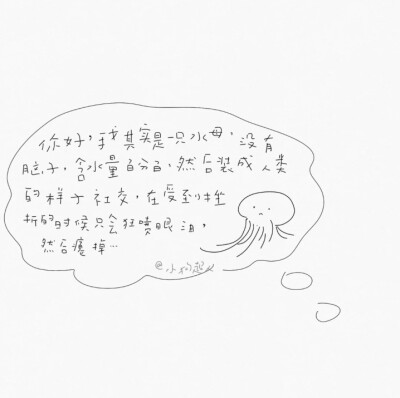 你好，我其实是一只水母，没有
脑子，含水量百分百，然后装成人类
的样子社交，在受到挫
折的时候只会狂喷眼泪，
然后瘪掉…
@小狗起义